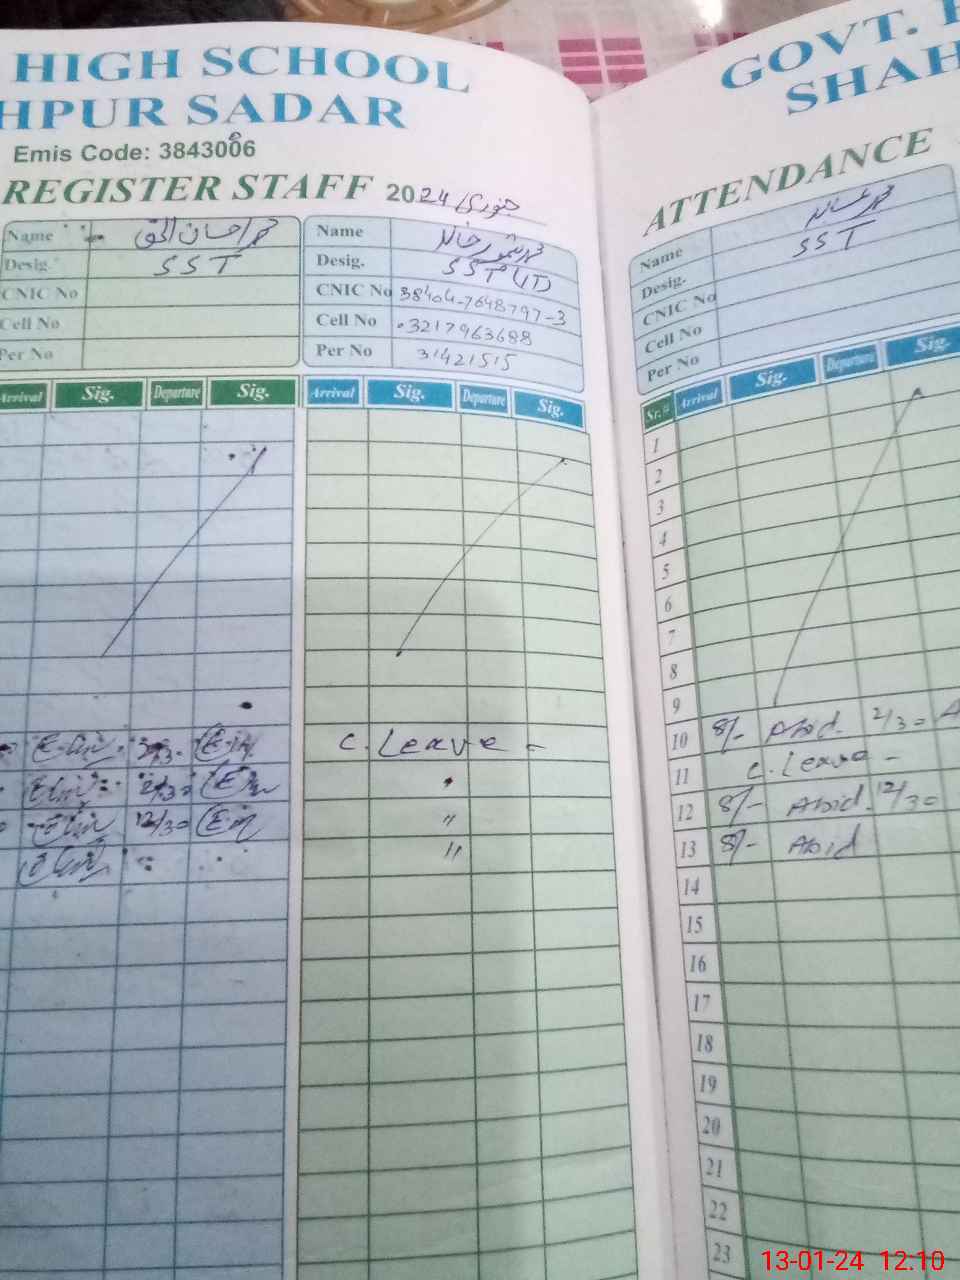 HIGH SCHOOL
HPUR SADAR
Emis Code: 3843006
REGISTER STAFF 2024 جنوری
Name محمد احسان الحق
Desig. SST
CNIC No
Cell No
Per No
Arrival Sig. Departure Sig.
12/30
12/30
Name
Desig. SST (IT)
CNIC No 38404-7648797-3
Cell No 03217963688
Per No 31421515
Arrival Sig. Departure Sig.
C. Leave -
"
"
GOVT.
SHAH
ATTENDANCE
Name
Desig. SST
CNIC No
Cell No
Per No
Sr.# Arrival Sig. Departure Sig.
1
2
3
4
5
6
7
8
9
10 8/- Abid. 12/30 A
11 C. Leave -
12 8/- Abid. 12/30
13 8/- Abid
14
15
16
17
18
19
20
21
22
23
13-01-24 12.10